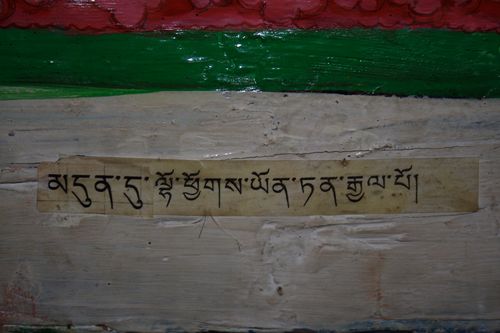 མདུན་དུ་ལྷོ་ཕྱོགས་ཡོན་ཏན་རྒྱལ་པོ།